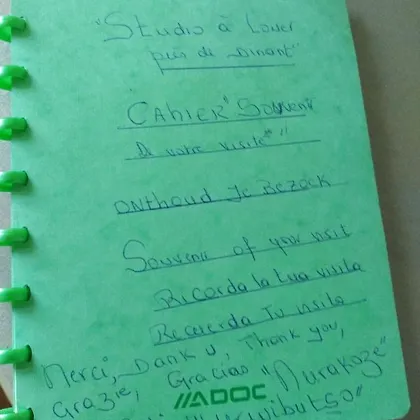 "Studio à Louer
près de Dinant"
CAHIER "Souvenir
De votre visite"
ONTHOUD Je Bezoek
Souvenir of your visit
Ricorda la tua visita
Recuerda Tu visita
Merci, Dank u, Thank you,
Grazie, Gracias "Murakoze"
ADOC